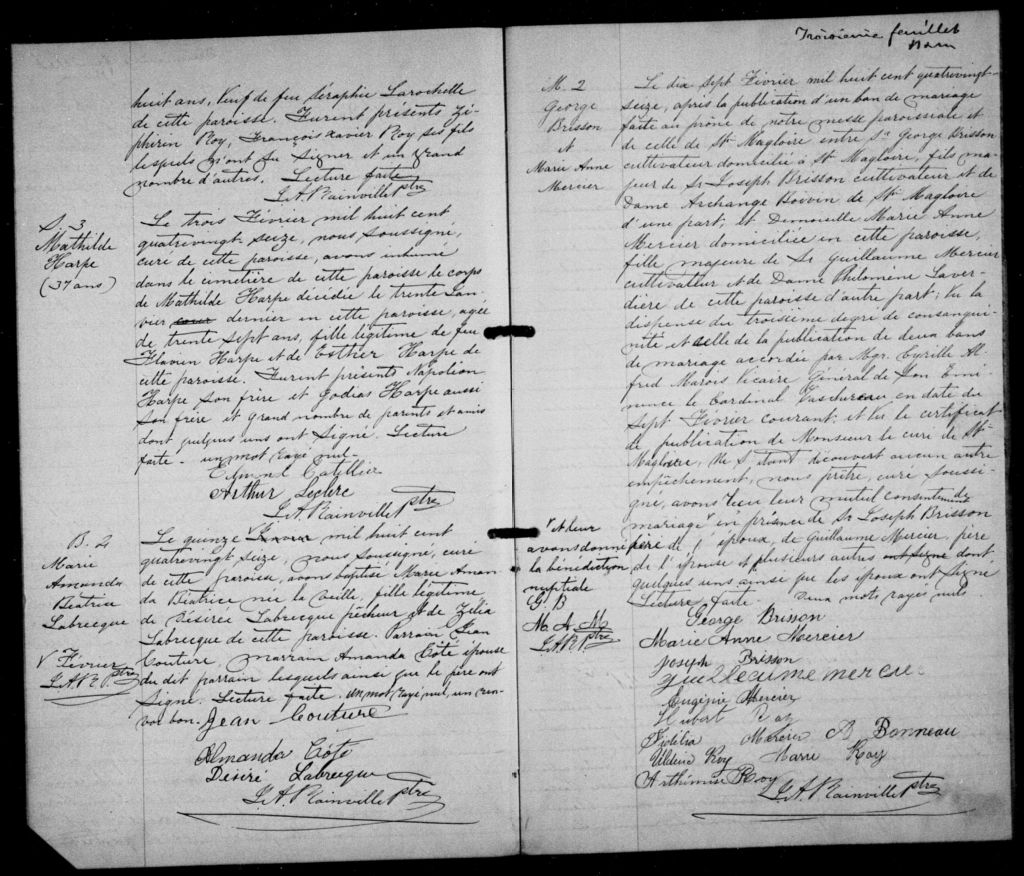 huit ans, Veuf de feu Séraphie Larochelle
de cette paroisse. Furent présents Zé-
phirin Roy, François Xavier Roy ses fils
lesquels n'ont su signer et un grand
nombre d'autres. Lecture faite
J.A. Rainville ptre
S. 3
Mathilde
Harpe
(37 ans)
Le trois Février mil huit cent
quatrevingt-seize, nous soussigné,
curé de cette paroisse, avons inhumé
dans le cimetière de cette paroisse le corps
de Mathilde Harpe décédée le trente Jan-
vier dernier en cette paroisse, agée
de trente sept ans, fille légitime de feu
Flavien Harpe et de Esther Harpe de
cette paroisse. Furent présents Napoléon
Harpe son frère et Godias Harpe aussi
son frère et grand nombre de parents et amis
dont quelques uns ont signé. Lecture
faite. un mot rayé nul.
Arthur Leclerc
J.A. Rainville ptre
B. 2
Marie
Amanda
Béatrice
Labrecque
Le quinze √ Janvier mil huit cent
quatrevingt seize, nous soussigné, curé
de cette paroisse, avons baptisé Marie Aman-
da Béatrice née la veille, fille légitime
de Désirée Labrecque pêcheur et de Zélia
Labrecque de cette paroisse. Parrain Jean
Couture, marraine Amanda Côté épouse
du dit parrain lesquels ainsi que le père ont
signé. Lecture faite. un mot rayé nul, un ren-
voi bon.
√ Février
J.A.R. ptre
Jean Couture
Amanda Côté
Désiré Labrecque
J.A. Rainville ptre
Troisième feuillet
M. 2
George
Brisson
et
Marie Anne
Mercier
Le dix sept Février mil huit cent quatrevingt-
seize, après la publication d'un ban de mariage
faite au prône de notre messe paroissiale et
de celle de St Magloire entre Sr George Brisson
cultivateur domicilié à St Magloire, fils ma-
jeur de Sr Joseph Brisson cultivateur et de
Dame Archange Boivin de St Magloire
d'une part; et Demoiselle Marie Anne
Mercier domiciliée en cette paroisse,
fille majeure de Sr Guillaume Mercier
cultivateur et de Dame Philomène Laver-
dière de cette paroisse d'autre part; Vu la
dispense du troisième degré de consangui-
nité et celle de la publication de deux bans
de mariage accordée par Mgr. Cyrille Al-
fred Marois Vicaire Général de Son Emi-
nence le Cardinal Taschereau en date du
sept Février courant; et Vu le certificat
de publication de Monsieur le curé de St
Magloire, Ne s'étant découvert aucun autre
empêchement, nous prêtre, curé soussi-
gné, avons reçu leur mutuel consentement de
mariage √ en présence de Sr Joseph Brisson
père de l'époux, de Guillaume Mercier, père
de l'épouse et plusieurs autres ont signé dont
quelques uns ainsi que les époux ont signé
Lecture faite. Deux mots rayés nuls
√ et leur
avons donné
la bénédiction
nuptiale
G. B
M. A. M
J.A.R. ptre
George Brisson
Marie Anne Mercier
Joseph Brisson
guilleaume mercie
Eugénie Mercier
Hubert Roy
Fidélia Mercier B Bonneau
Roy Marie Roy
Arthémise Roy
J.A. Rainville ptre